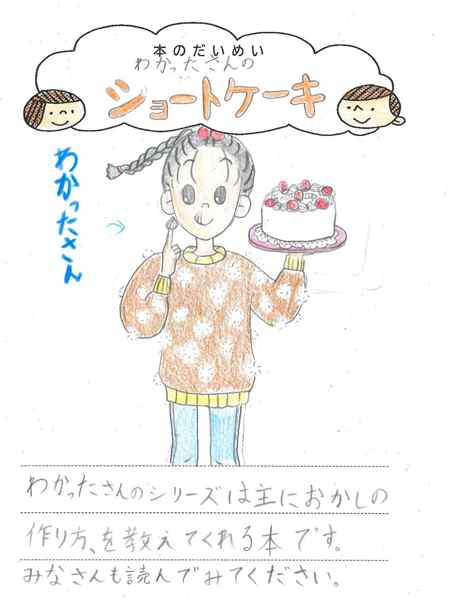 本のだいめい
わかったさんの
ショートケーキ
わかったさん
わかったさんのシリーズは主におかしの
作り方、を教えてくれる本です。
みなさんも読んでみてください。